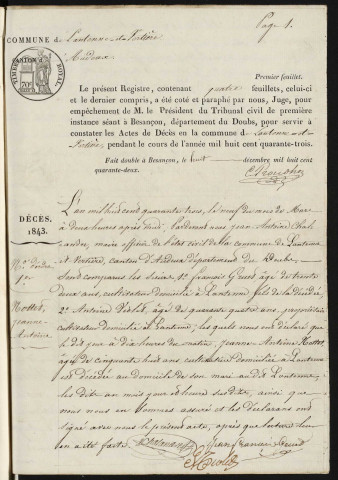 Page 1.
COMMUNE de Lantenne et Vertière
Audeux
TIMBRE ROYAL
Premier feuillet.
Le présent Registre, contenant quatre feuillets, celui-ci
et le dernier compris, a été coté et paraphé par nous, Juge, pour
empêchement de M. le Président du Tribunal civil de première
instance séant à Besançon, département du Doubs, pour servir à
constater les Actes de Décès en la commune de Lantenne et
Vertière, pendant le cours de l'année mil huit cent quarante-trois.
Fait double à Besançon, le huit décembre mil huit cent
quarante-deux.
DÉCÈS.
1843.
N.° d'ordre
1er
Mottet,
Jeanne-
Antoine
L'an mil huit cent quarante trois, le neuf du mois de Mars
à deux heures après midi, Pardevant nous Jean Antoine
maire officier de l'état civil de la commune de Lantenne
et Vertière, canton d'Audeux département du Doubs
Sont comparus les sieurs 1° François Groud âgé de trente
deux ans, cultivateur domicilié à Lantenne fils de la décédée
2° Antoine Violet, âgé de quarante quatre ans, propriétaire
cultivateur domicilié à Lantenne, les quels nous ont déclaré que
le dit jour à dix heures du matin, Jeanne Antoine Mottet
âgée de cinquante huit ans, cultivatrice domiciliée à Lantenne
est décédée au domicile de son mari au dit Lantenne,
les dits an mois jour et heure susdits, ainsi que
nous nous en sommes assuré et les déclarans ont
signé avec nous le présent acte, après que lecture leur
en a été faite.